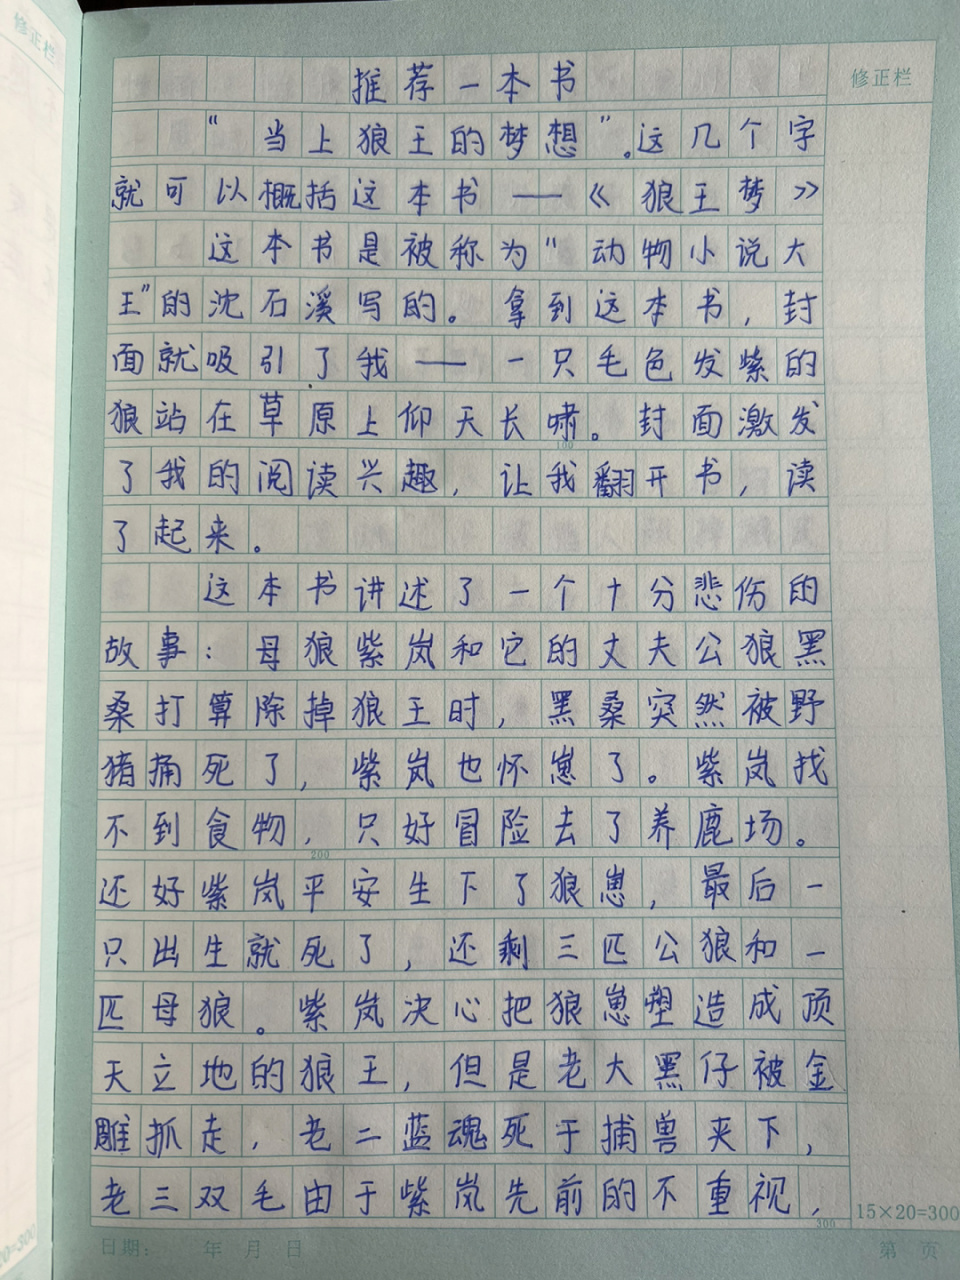 修正栏
修正栏
推荐一本书
“当上狼王的梦想”。这几个字
就可以概括这本书——《狼王梦》
这本书是被称为“动物小说大
王”的沈石溪写的。拿到这本书，封
面就吸引了我——一只毛色发紫的
狼站在草原上仰天长啸。封面激发
100
了我的阅读兴趣，让我翻开书，读
了起来。
这本书讲述了一个十分悲伤的
故事：母狼紫岚和它的丈夫公狼黑
桑打算除掉狼王时，黑桑突然被野
猪捅死了，紫岚也怀崽了。紫岚找
不到食物，只好冒险去了养鹿场。
200
还好紫岚平安生下了狼崽，最后一
只出生就死了，还剩三匹公狼和一
匹母狼。紫岚决心把狼崽塑造成顶
天立地的狼王，但是老大黑仔被金
雕抓走，老二蓝魂死于捕兽夹下，
老三双毛由于紫岚先前的不重视，
300
15×20=300
20=300
日期： 年 月 日
第 页